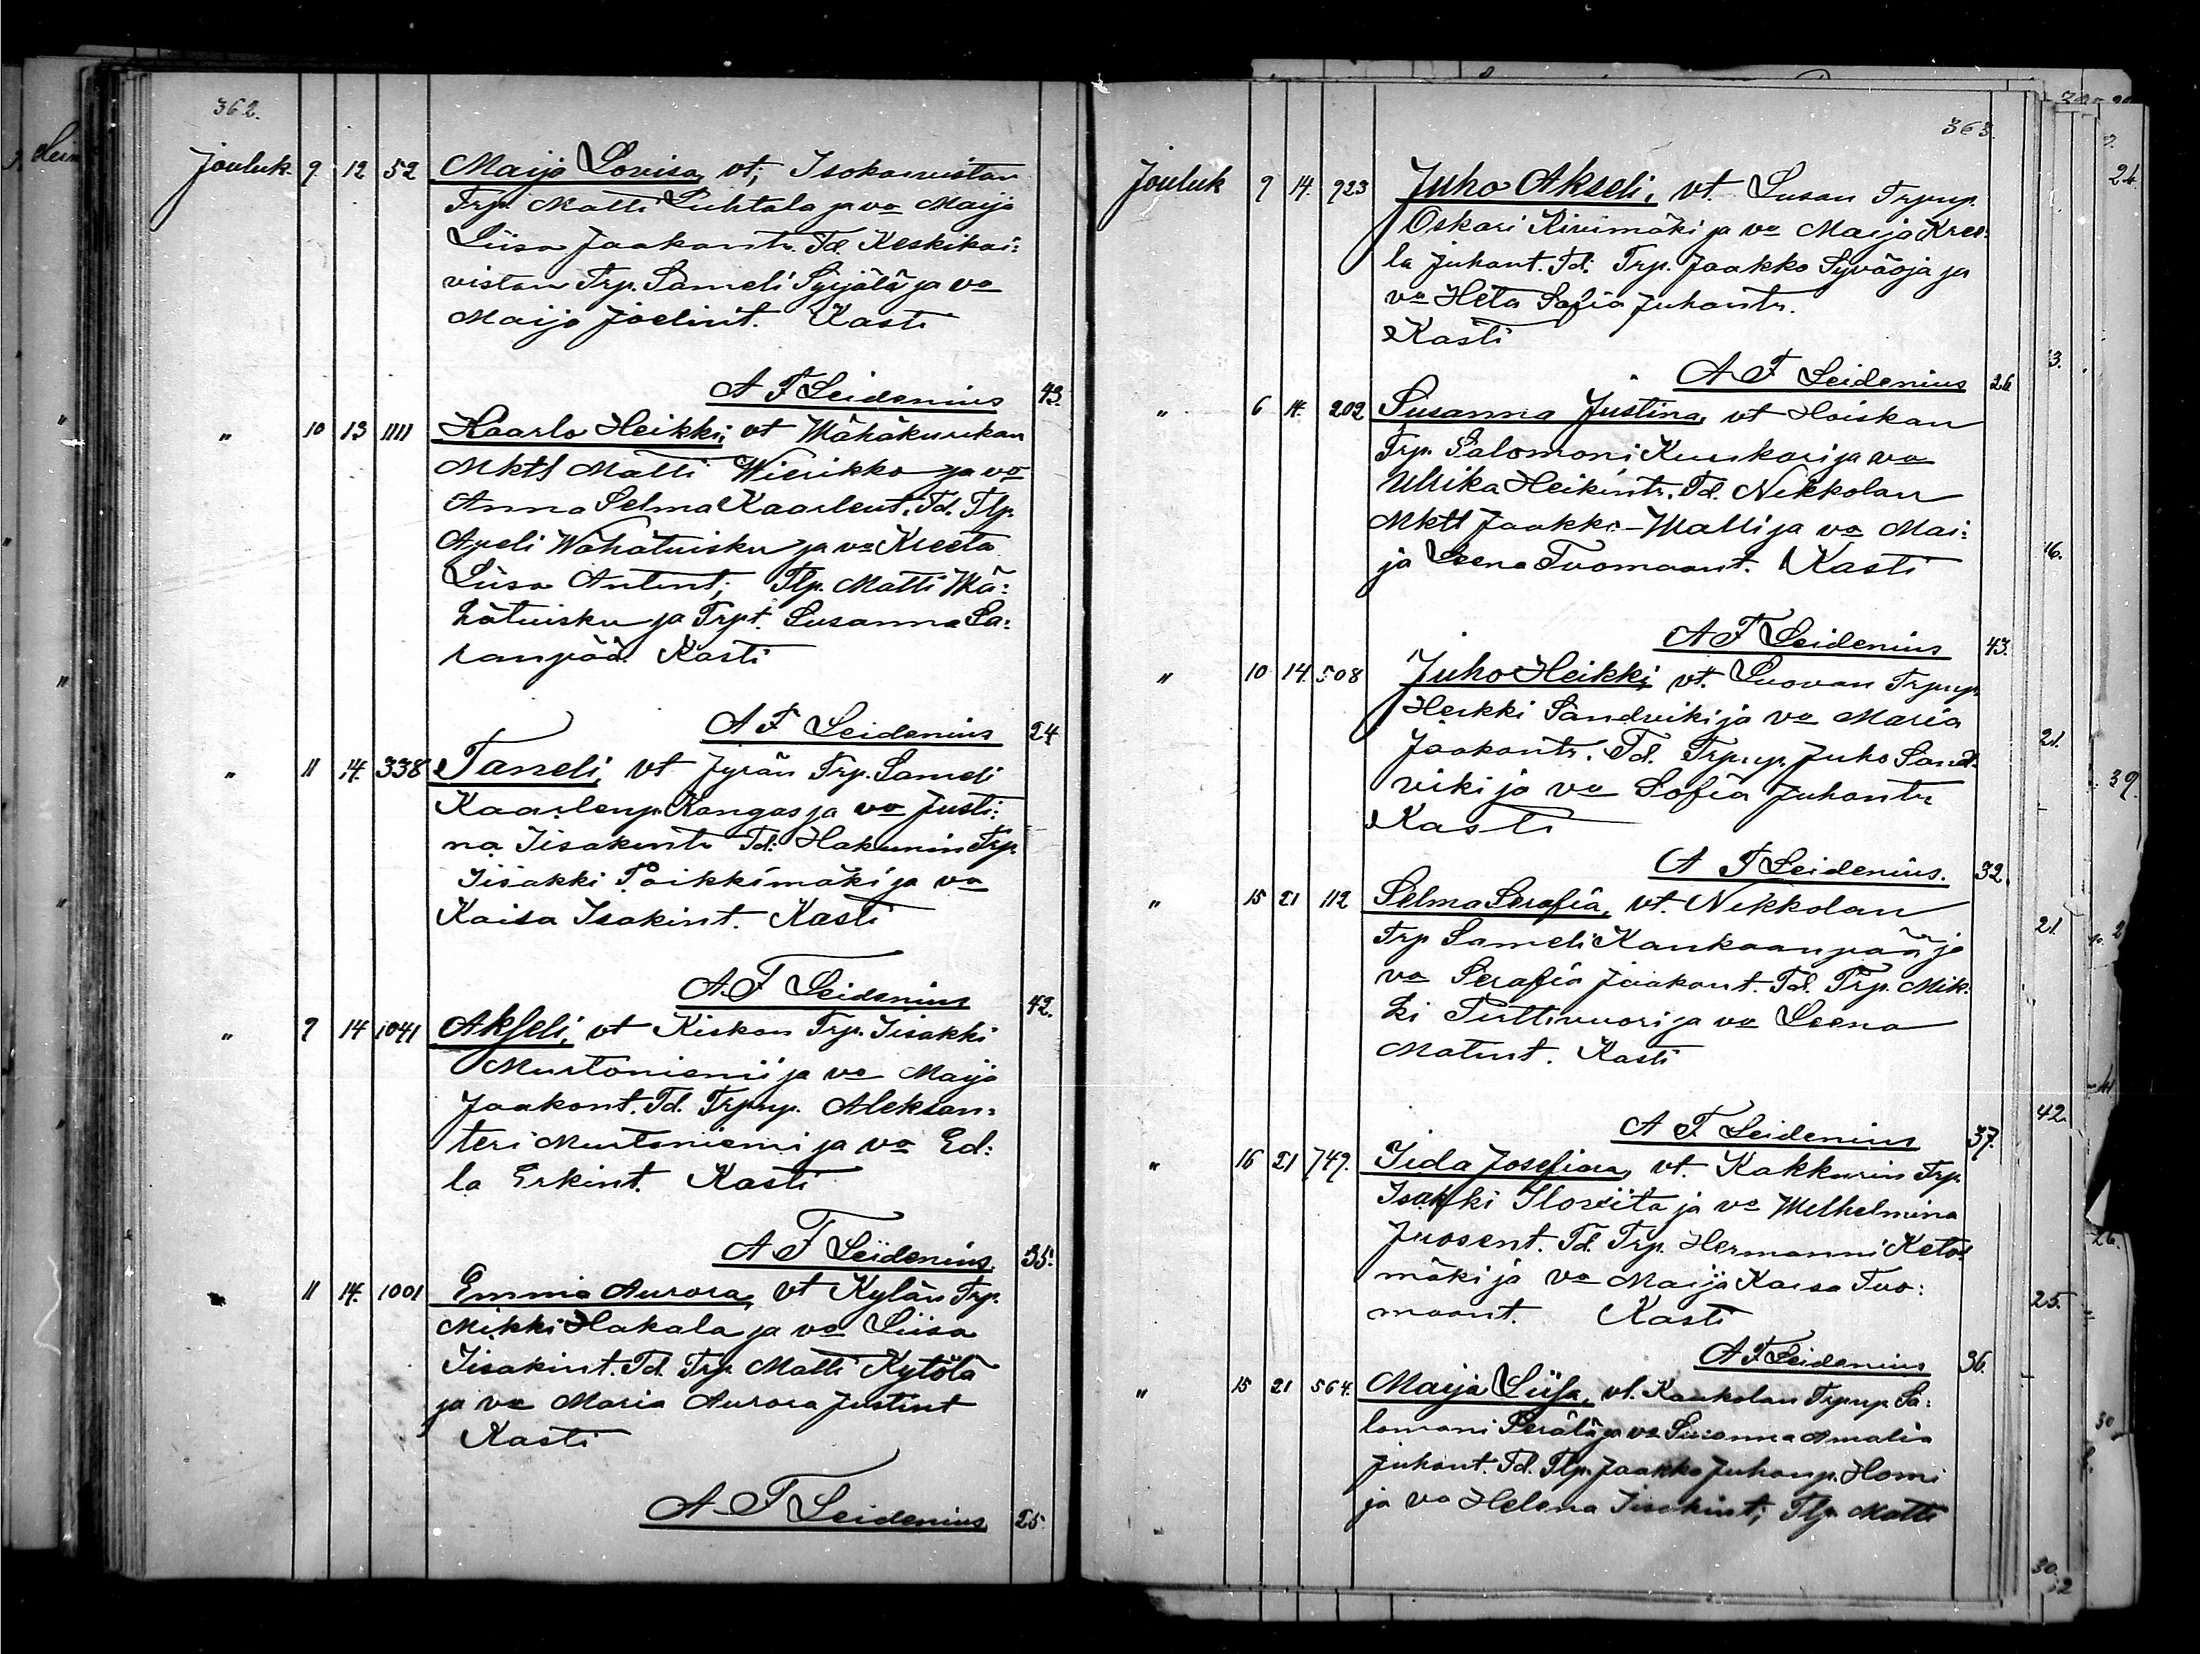 362.
Jouluk. 9 12 52 Maija Lovisa, vt; Isokoivistan
Trp. Matti Luhtala ja vo Maija
Liisa Jaakontr. Td. Keskikoi:
vistan Trp. Sameli Syrjälä ja vo
Maija Joelint. Kasti
A F Leidenius 43.
" 10 13 1111 Kaarlo Heikki, vt Wähäkuurikan
Mktl Matti Wierikko ja vo
Anna Selma Kaarlent. Td. Tlp.
Apeli Wähätuisku ja vo Kreeta
Liisa Antint; Tlp. Matti Wä:
hätuisku ja Trpt. Susanna Sa:
ranpää. Kasti
A F Leidenius 24
" 11 14 338 Taneli, vt Jyrän Trp. Sameli
Kaarlenp. Kangas ja vo Justi:
na Iisakintr Td: Hakunin Trp.
Iisakki Poikkimäki ja vo
Kaisa Isakint. Kasti
A. F Leidenius 42.
" 9 14 1041 Akseli, vt Kiskon Trp. Iisakki
Murtoniemi ja vo Maija
Jaakont. Td. Trpnp. Aleksan:
teri Murtoniemi ja vo Ed:
la Erkint. Kasti
A F Leidenius. 35.
" 11 14. 1001 Emmia Aurora, vt Kylän Trp.
Mikki Hakala ja vo Liisa
Iisakint. Td. Trp. Matti Kytölä
ja vo Maria Aurora Justint
Kasti
A F Leidenius 25.
363.
Jouluk 9 14. 923 Juho Akseli, vt. Lusan Trpnp.
Oskari Kivimäki ja vo Maija Kree:
la Juhont. Td. Trp. Jaakko Syväoja ja
vo Heta Sofia Juhontr.
Kasti
A F Leidenius 26
" 6 14. 202 Susanna Justina, vt Hoiskan
Trp. Salomoni Kuukari ja vo
Ulrika Heikintr. Td. Nikkolan
Mktl Jaakko-Malli ja vo Mai:
ja Leena Tuomaant. Kasti
A F Leidenius 43.
" 10 14 508 Juho Heikki, vt. Luovan Trpnp.
Heikki Sandviki ja vo Maria
Jaakontr. Td. Trpnp. Juho Sand:
viki ja vo Sofia Juhontr
Kasti
A F Leidenius. 32.
" 15 21 112 Selma Serafia, vt. Nikkolan
Trp Sameli Kankaanpää ja
vo Serafia Jaakont. Td. Trp. Mik:
ki Perttivuori ja vo Leena
Matint. Kasti
A F Leidenius 37.
" 16 21 749. Iida Josefina, vt. Kakkurin Trp.
Isakki Iloviita ja vo Wilhelmina
Juosent. Td. Trp. Hermanni Keto:
mäki ja vo Maija Kaisa Tuo:
maant. Kasti
A F Leidenius 36.
" 15 21 564. Maija Liisa, vt. Kaukolan Trpnp. Sa:
lomoni Perälä ja vo Susanna Amalia
Juhont. Td. Tlp. Jaakko Juhonp. Homi
ja vo Helena Iisakint; Tlp Matti